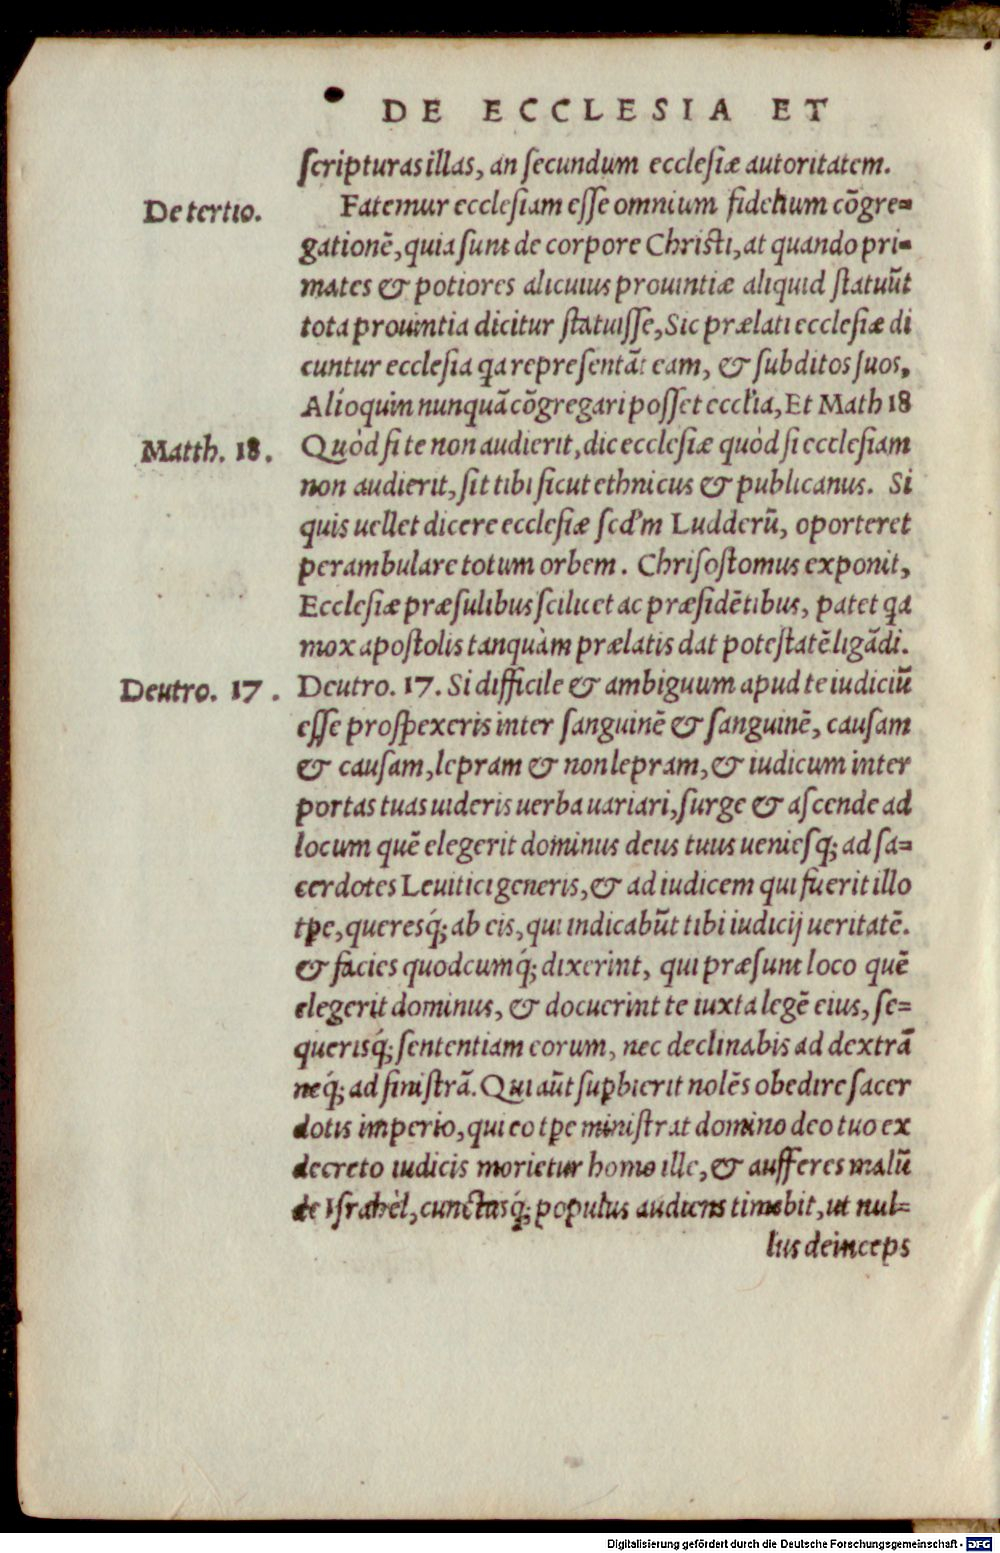 DE ECCLESIA ET
scripturas illas, an secundum ecclesiæ autoritatem.
De tertio.
Fatemur ecclesiam esse omnium fidelium cõgre=
gationẽ, quia sunt de corpore Christi, at quando pri=
mates & potiores alicuius prouintiæ aliquid statuũt
tota prouintia dicitur statuisse, Sic prælati ecclesiæ di
cuntur ecclesia qa repræsentãt eam, & subditos suos,
Alioquin nunquã cõgregari posset eccl'ia, Et Math 18
Matth. 18.
Quòd si te non audierit, dic ecclesiæ quòd si ecclesiam
non audierit, sit tibi sicut ethnicus & publicanus. Si
quis uellet dicere ecclesiæ scd'm Ludderũ, oporteret
perambulare totum orbem. Chrisostomus exponit,
Ecclesiæ præsulibus scilicet ac præsidẽtibus, patet qa
mox apostolis tanquàm prælatis dat potestatẽ ligãdi.
Deutro. 17.
Deutro. 17. Si difficile & ambiguum apud te iudiciũ
esse prospexeris inter sanguinẽ & sanguinẽ, causam
& causam, lepram & non lepram, & iudicum inter
portas tuas uideris uerba uariari, surge & ascende ad
locum quẽ elegerit dominus deus tuus ueniesq; ad sa=
cerdotes Leuitici generis, & ad iudicem qui fuerit illo
tpe, queresq́; ab eis, qui indicabũt tibi iudicij ueritatẽ.
& facies quodcumq́; dixerint, qui præsunt loco quẽ
elegerit dominus, & docuerint te iuxta legẽ eius, se=
querisq́; sententiam eorum, nec declinabis ad dextrã
neq́; ad sinistrã. Qui aũt sup̱bierit nolẽs obedire sacer
dotis imperio, qui eo tpe ministrat domino deo tuo ex
decreto iudicis morietur homo ille, & aufferes malũ
de Israhèl, cunctusq́; populus audiens timebit, ut nul=
lus deinceps
Digitalisierung gefördert durch die Deutsche Forschungsgemeinschaft - DFG